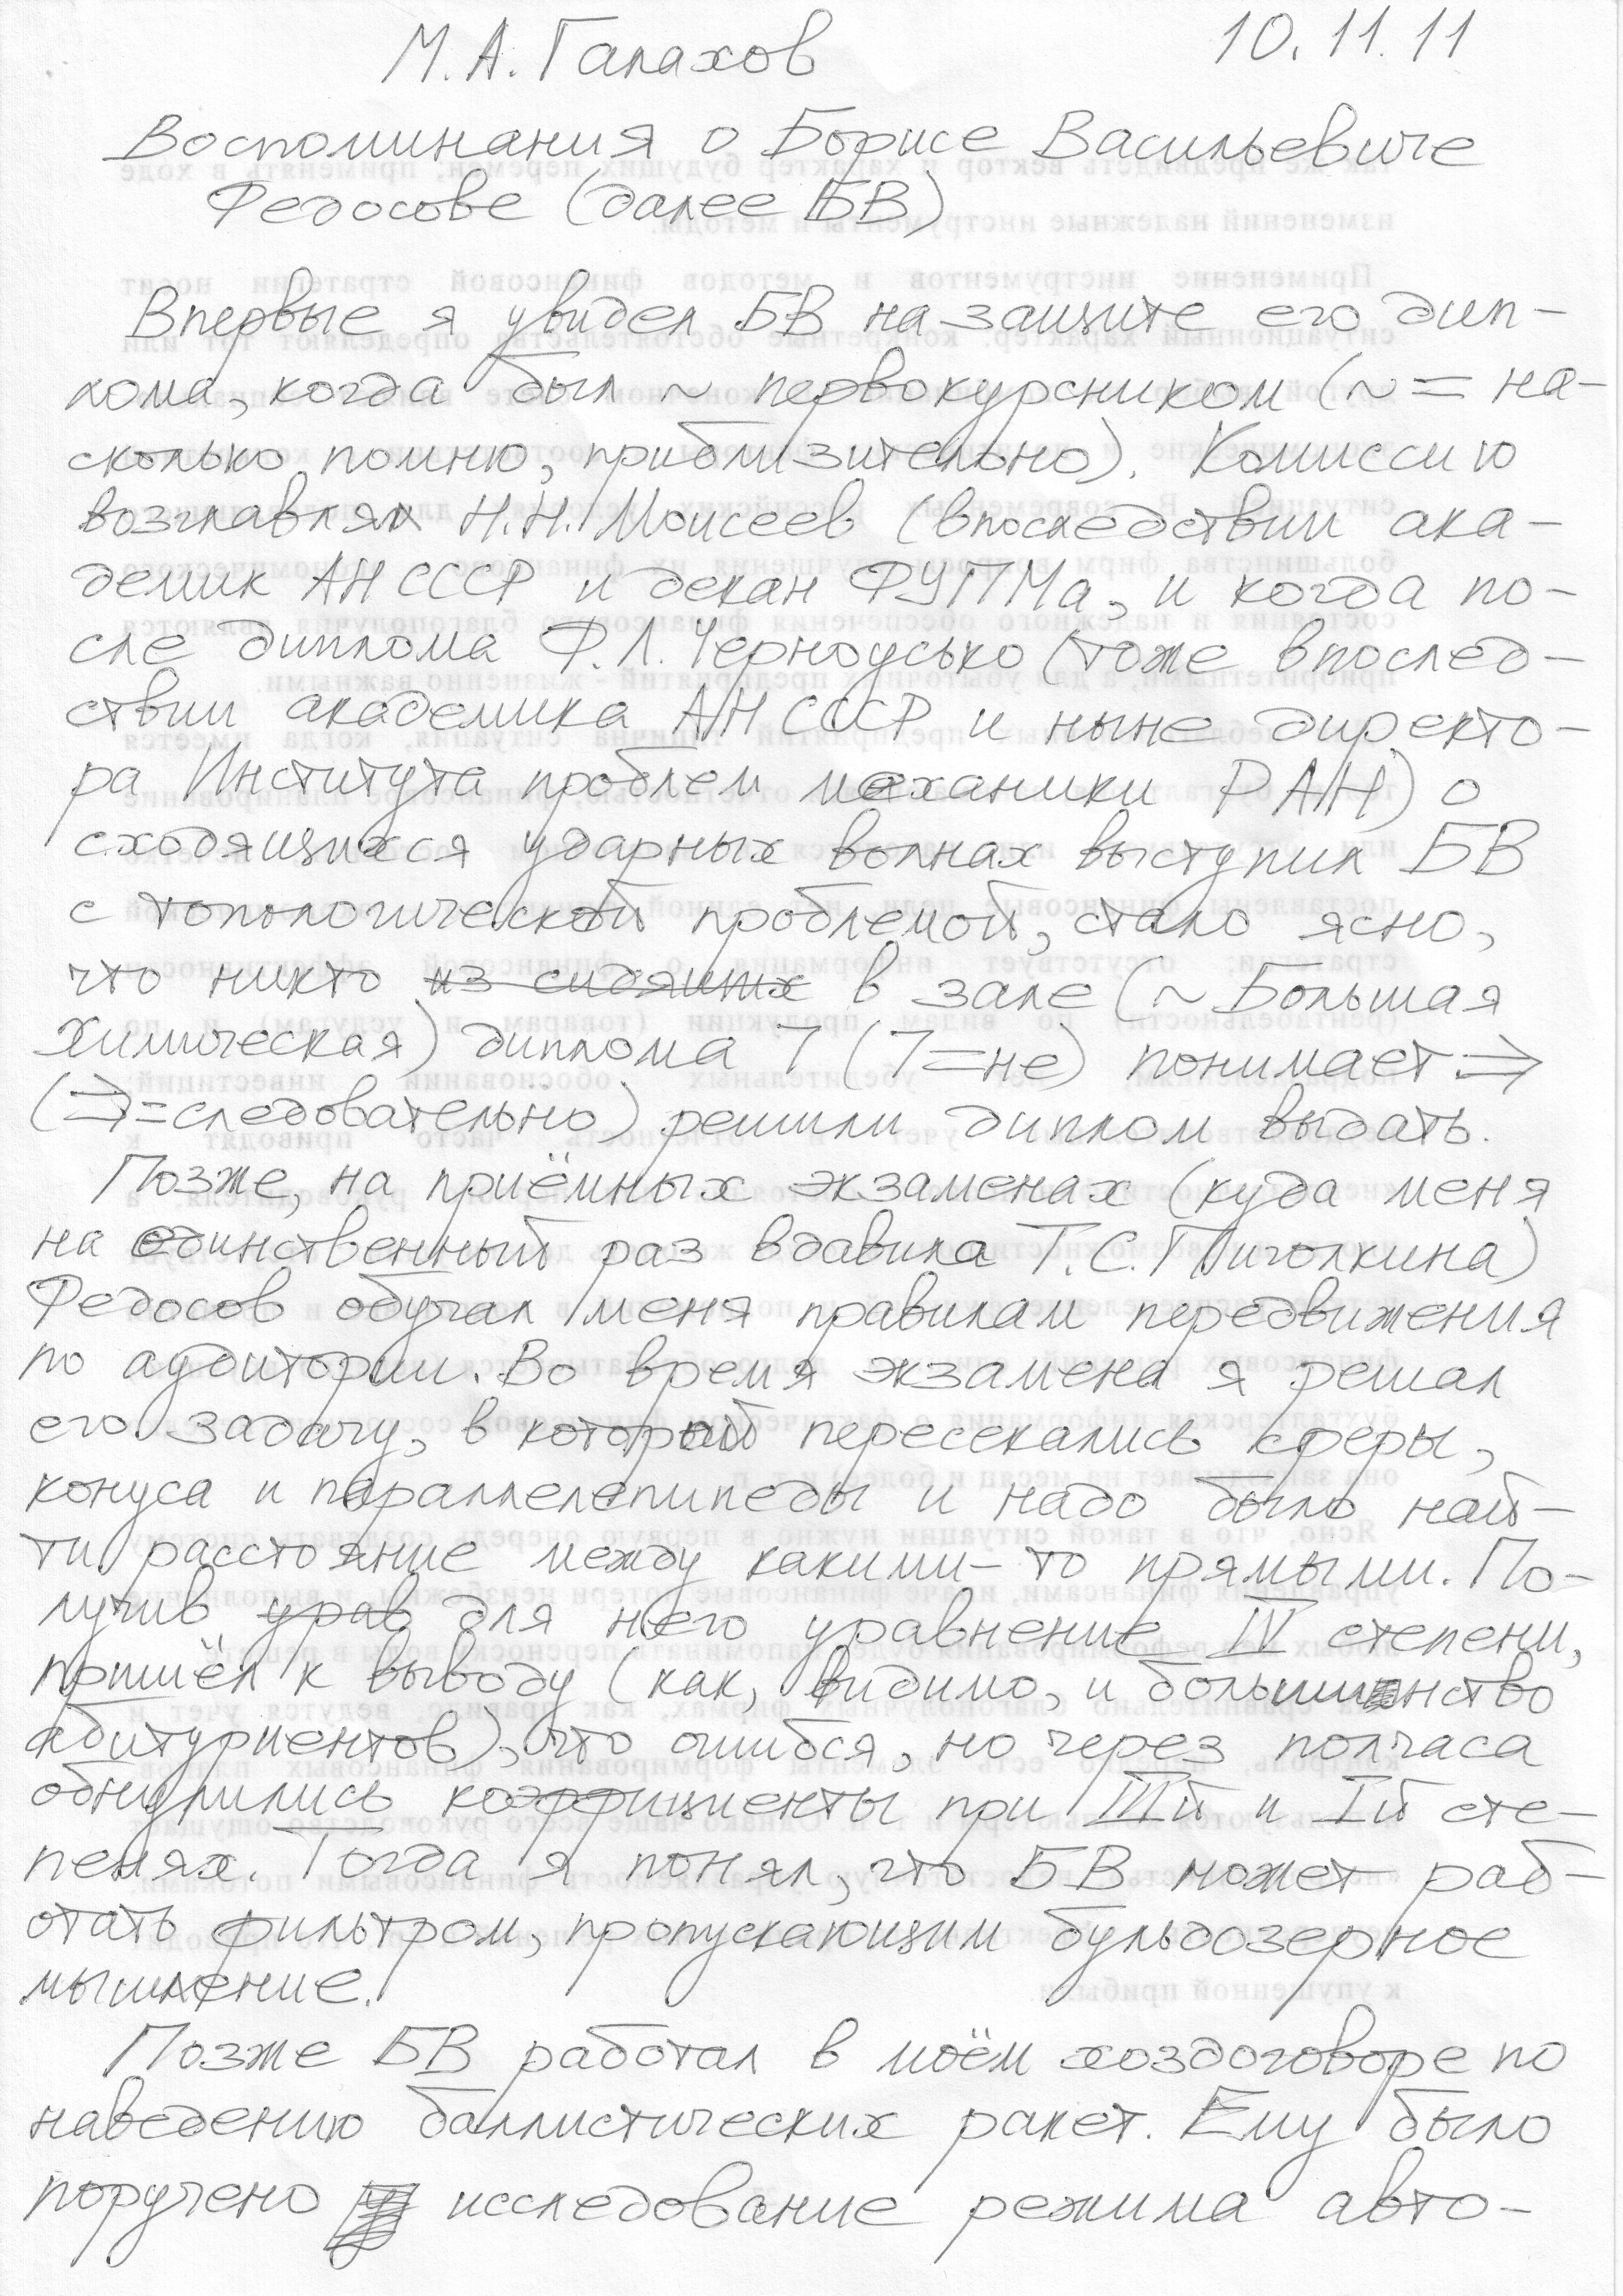 М.А. Галахов 10.11.11
Воспоминания о Борисе Васильевиче
Федосове (далее БВ)
Впервые я увидел БВ на защите его дип-
лома, когда был ~ первокурсником (~ = на-
сколько помню, приблизительно). Комиссию
возглавлял Н.Н. Моисеев (впоследствии ака-
демик АН СССР и декан ФУПМа, и когда по-
сле диплома Ф.Л. Черноусько (тоже впослед-
ствии академика АН СССР и ныне директо-
ра Института проблем механики РАН) о
сходящихся ударных волнах выступил БВ
с топологической проблемой, стало ясно,
что никто из сидящих в зале (~ Большая
Химическая) диплома ㄱ (ㄱ = не) понимает ⇒
(⇒ = следовательно) решили диплом выдать.
Позже, на приёмных экзаменах (куда меня
на единственный раз вдавила Т.С. Пиголкина)
Федосов обучал меня правилам передвижения
по аудитории. Во время экзамена я решал
его задачу, в которой пересекались сферы,
конуса и параллелепипеды и надо было най-
ти расстояние между какими-то прямыми. По-
лучив урав для него уравнение IV степени,
пришёл к выводу (как, видимо, и большинство
абитуриентов), что ошибся, но через полчаса
обнулились коэффициенты при IIIй и Iй сте-
пенях. Тогда я понял, что БВ может раб-
отать фильтром, пропускающим бульдозерное
мышление.
Позже БВ работал в моём хоздоговоре по
наведению баллистических ракет. Ему было
поручено исследование режима авто-